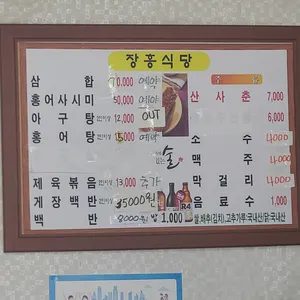 장흥식당
삼 합 70,000 예약
홍어사시미 50,000 예약
아구탕 12,000 OUT
홍어탕 15,000 예약
제육볶음 13,000 추가
게장백반 35000원
백 반 8000원 밥 1,000
주 류
산 사 춘 7,000
6,000
소 주 4,000
맥 주 4,000
막 걸 리 4,000
음 료 수 1,000
술
쌀,배추(김치),고추가루:국내산/닭:국내산